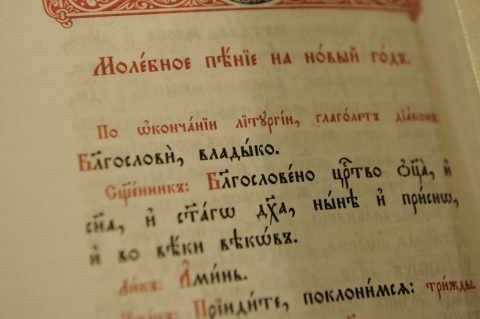 Моле́бное пѣ́нїе на но́вый го́дъ.
По ѡ҆конча́нїи лїтꙋргі́и, глаго́летъ дїа́конъ:
Бл҃гословѝ, влады́ко.
Сщ҃е́нникъ: Бл҃гослове́но црⷭ҇тво ѻ҆ц҃а̀, и҆
сн҃а, и҆ ст҃а́гѡ дх҃а, ны́нѣ и҆ при́снѡ,
и҆ во вѣ́ки вѣкѡ́въ.
Ли́къ: А҆ми́нь.
Прїиди́те, поклони́мсѧ: три́жды.